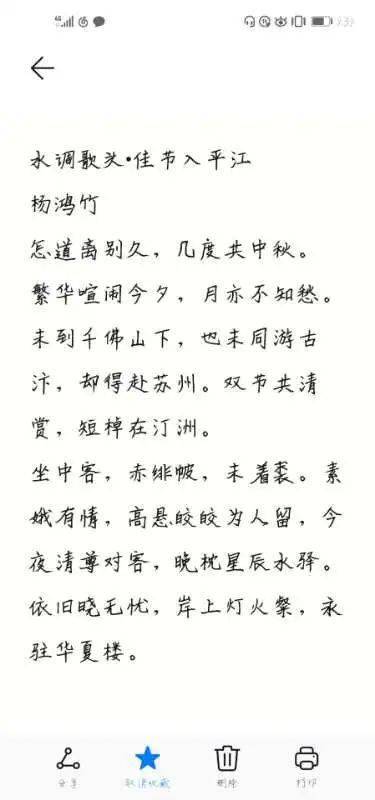 9:39
水调歌头•佳节入平江
杨鸿竹
怎道离别久，几度共中秋。
繁华喧闹今夕，月亦不知愁。
未到千佛山下，也未同游古
汴，却得赴苏州。双节共清
赏，短棹在汀洲。
坐中客，赤绯帔，未着裘。素
娥有情，高悬皎皎为人留，今
夜清尊对客，晚枕星辰水驿。
依旧晓无忧，岸上灯火粲，永
驻华夏楼。
分享 取消收藏 删除 打印